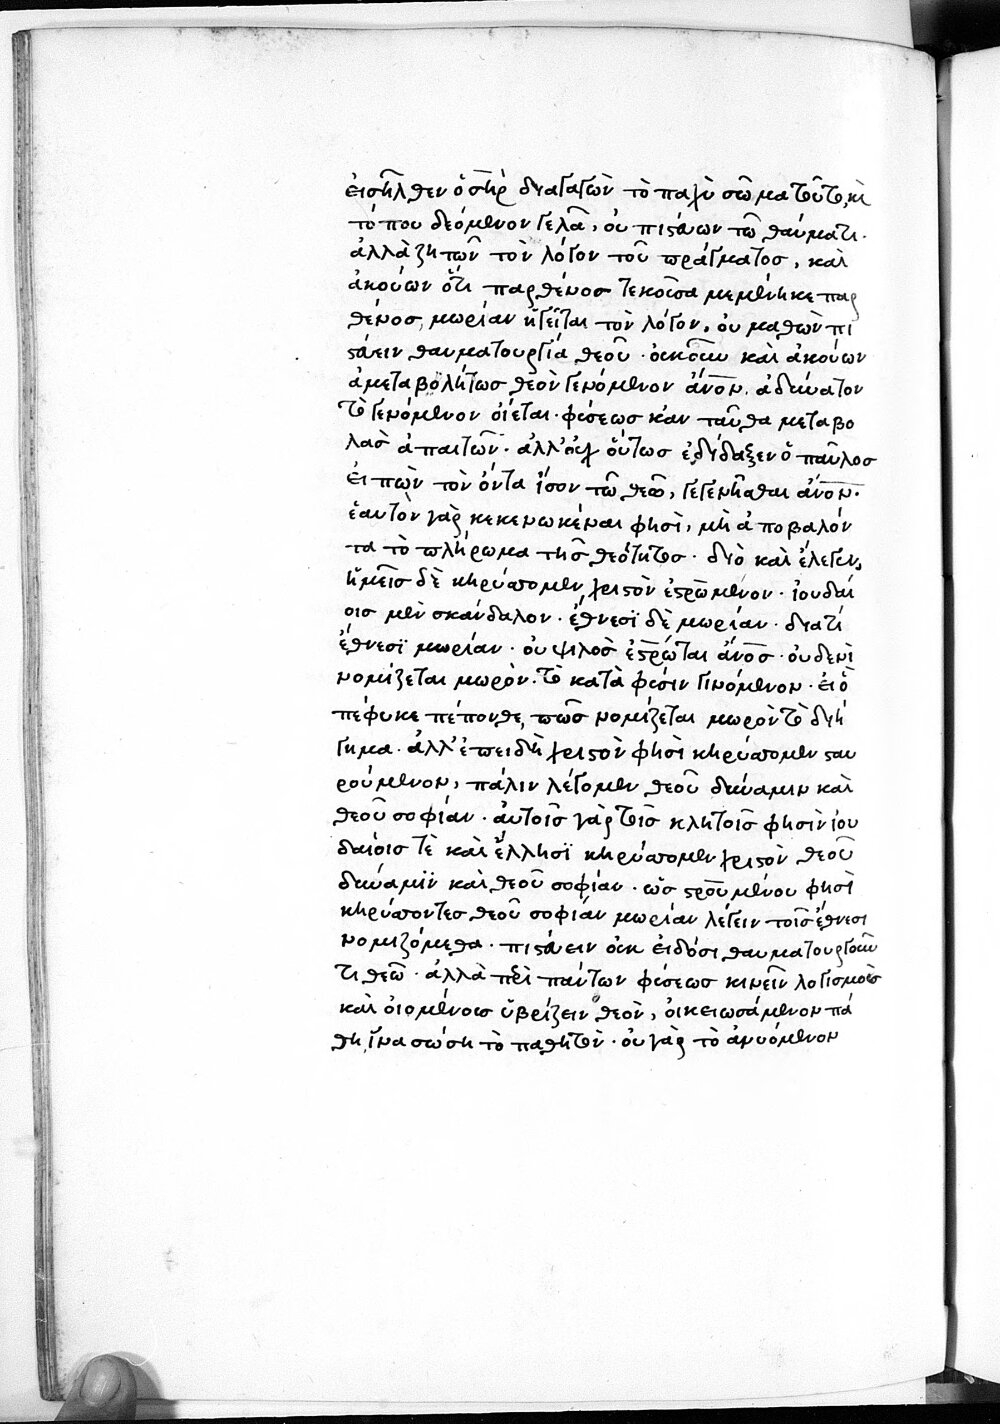 ἐισῆλθεν ὁ σ̅η̅ρ διαγαγὼν τὸ παχὺ σῶμα τοῦτο, κὶ
τόπου δεόμενον γελᾶ, οὐ πιστεύων τῶ θαύματι.
ἀλλὰ ζητῶν τὸν λόγον τοῦ πράγματος, καὶ
ἀκούων ὅτι παρθένος τεκοῦσα μεμένηκε παρ
θένος, μωρίαν ἡγεῖται τὸν λόγον. οὐ μαθὼν πι
στεύειν θαυματουργία θεοῦ · οὐκοῦν καὶ ἀκούων
ἀμεταβολήτως θεὸν γενόμενον ἄ̅ν̅ο̅ν̅. ἀδύνατον
τὸ γενόμενον οἴεται · φύσεως κἀνταῦθα μεταβο
λὰς ἀπαιτῶν · ἀλλ' οὐχ οὕτως ἐδίδαξεν ὁ παῦλος
ἐιπὼν τὸν ὄντα ἴσον τῶ θεῶ, γεγενῆσθαι ἄ̅ν̅ο̅ν̅ ·
ἑαυτὸν γὰρ κεκενωκέναι φησὶ, μὴ ἀποβαλόν
τα τὸ πλήρωμα τῆς θεότητος · διὸ καὶ ἔλεγεν,
ἡμεῖς δὲ κηρύττομεν χριστὸν ἐσ̅ρ̅ωμένον · ἰουδαί
οις μὲν σκάνδαλον · ἔθνεσϊ δὲ μωρίαν · διατί
ἔθνεσϊ μωρίαν · οὐ ψιλὸς ἐσ̅ρ̅ωται ἄ̅ν̅ο̅ς̅ · οὐδενὶ
νομίζεται μωρὸν · τὸ κατὰ φύσιν γινόμενον · ἐι ὃ
πέφυκε πέπονθε, πῶς νομίζεται μωρὸν τὸ διή
γημα · ἀλλ' ἐπειδὴ χριστὸν φησὶ κηρύττομεν σταυ
ρούμενον, πάλιν λέγομεν θεοῦ δύναμιν καὶ
θεοῦ σοφίαν · αὐτοῖς γὰρ τοῖς κλητοῖς φησὶν ἰου
δαίοις τὲ καὶ ἕλλησϊ κηρύττομεν χριστὸν θεοῦ
δύναμϊν καὶ θεοῦ σοφίαν · ὡς σ̅ρ̅ουμένου φησὶ
κηρύττοντες θεοῦ σοφίαν μωρίαν λέγειν τοῖς ἔθνεσι
νομιζόμεθα · πιστεύειν οὐκ ἐιδόσι θαυματουργοῦν
τι θεῶ · ἀλλὰ περὶ πάντων φύσεως κινεῖν λογισμοὺς
καὶ οἰομένοις ὑβρίζειν θεὸν, οἰκειωσάμενον πά
θη, ἵνα σώση τὸ παθητὸν · οὐ γὰρ τὸ ἀνυόμενον